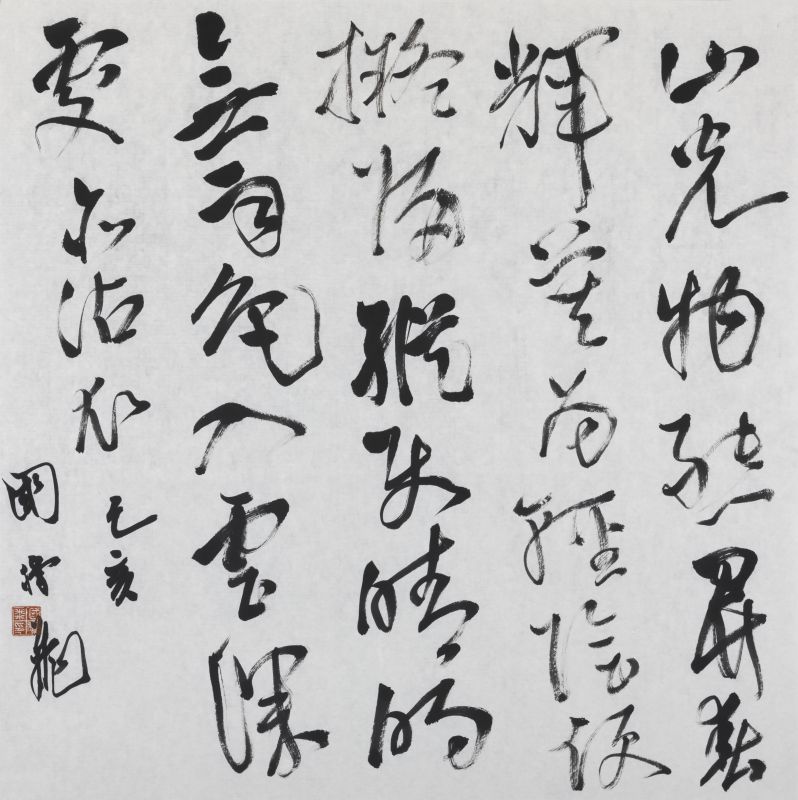 山光物態弄春
輝莫為輕陰便
擬歸縱使晴明
無雨色入雲深
處亦沾衣
己亥